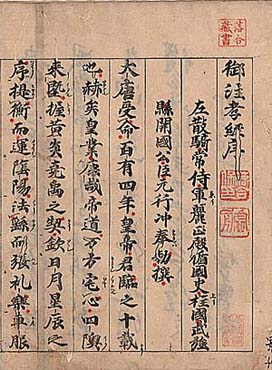 落合
藏書
御注孝經序
左散騎常侍兼麗正殿脩國史柱國武強
縣開國公臣元行沖奉勅撰
大唐受命百有四年皇帝君臨之十載
也赫矣皇業康哉帝道万方宅心四隩
來墍握黃炎堯禹之契欽日月星辰之
序提衡而運陰陽法繇而張禮樂車服